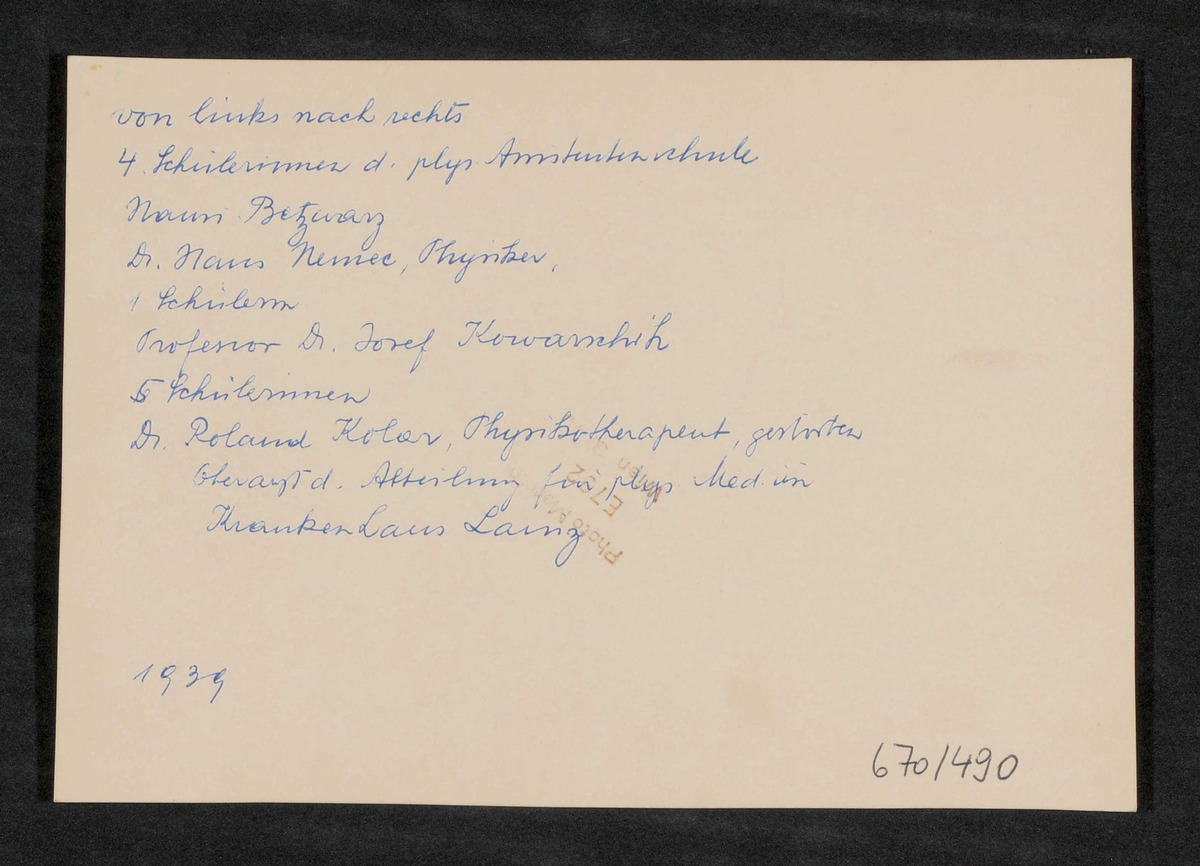 von links nach rechts
4 Schülerinnen d. phys. Assistentenschule
Hansi Betzwarz
Dr. Hans Nemec, Physiker,
1 Schülerin
Professor Dr. Josef Kowarschik
5 Schülerinnen
Dr. Roland Kolar, Physikotherapeut, gestorben
Oberarzt d. Abteilung für phys Med. im
Krankenhaus Lainz
Photo
E792
1939
670/490